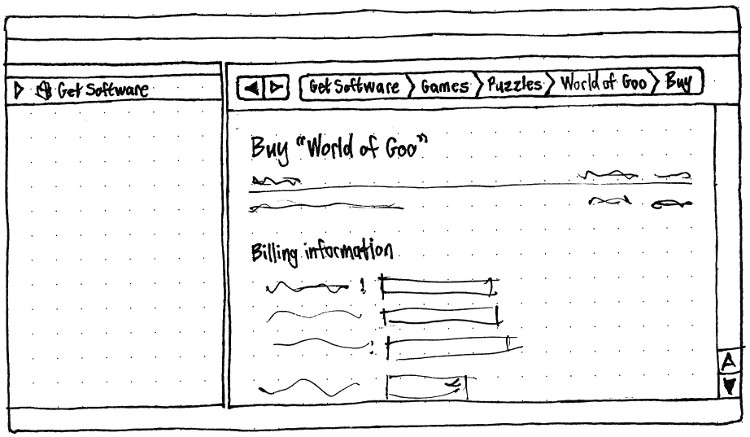 Get Software
Get Software Games Puzzles World of Goo Buy
Buy "World of Goo"
Billing information